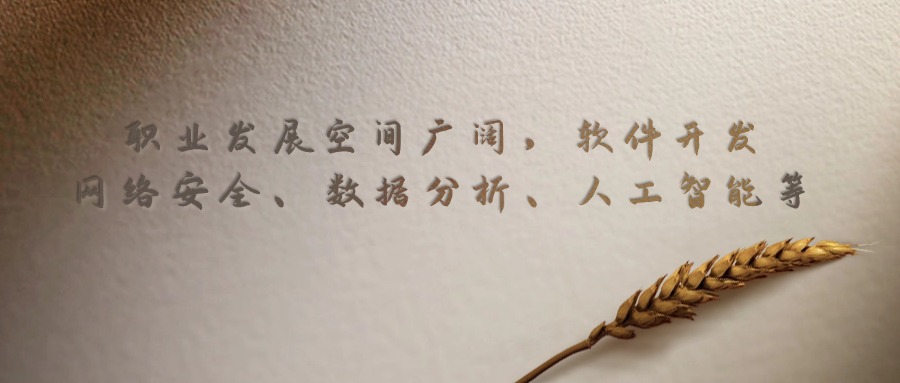 职业发展空间广阔，软件开发
网络安全、数据分析、人工智能等